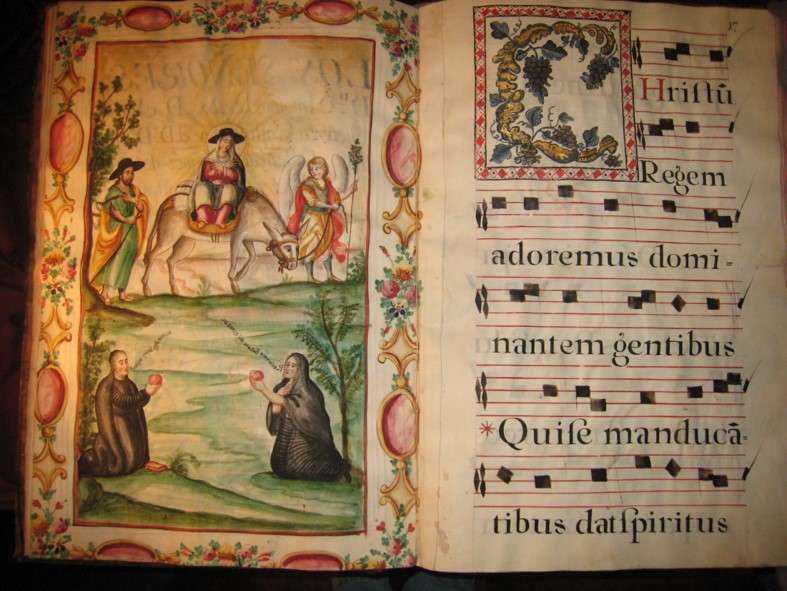 17
CHriſtū
Regem
adoremus domi=
nantem gentibus
*Quiſe manducā=
tibus datſpiritus